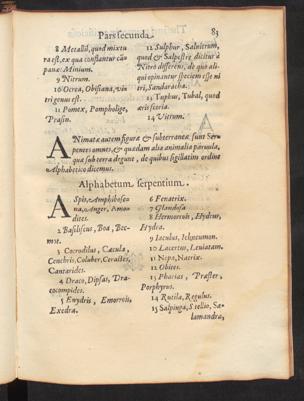 Pars secunda.
83
8 Metallũ, quod mixtu
ra est, ex qua constantur cã-
panæ Minium.
9 Nitrum.
10 Ocrea, Obsiana, vi-
tri genus est.
11 Pomex, Pompholige,
Prasin.
12 Sulphur, Salnitrum,
quod & Salpestre dicitur à
Nitro differens, de quo ali-
qui opinantur speciem esse ni
tri, Sandaracha.
13 Tuphus, Tubal, quod
æris scoria.
14 Vitrum.
ANimatæ autem figuræ & subterraneæ sunt Ser-
pentes omnes, & quædam alia animalia paruula,
quæ sub terra degunt, de quibus sigillatim ordine
Alphabetico dicemus.
Alphabetum serpentium.
ASpis, Amphisboe-
na, Anger, Amo-
dites.
2 Basiliscus, Boa, Bec-
3 Cocrodilus, Cæcula,
Cenchris, Coluber, Cerastes,
Cantarides.
4 Draco, Dipsas, Dra-
cocompides.
5 Enydris, Emorrois,
Exedra.
6 Fenatrix.
7 Glandosa
8 Hermorrois, Hydrus,
Hydra.
9 Iaculus, Ichneumon.
10 Lacertus, Leuiatam.
11 Nepa, Natrix.
12 Obites.
13 Pharias, Præster,
Porphyrus.
14 Rutila, Regulus.
15 Salpinga, Stellio, Sa-
lamandra,